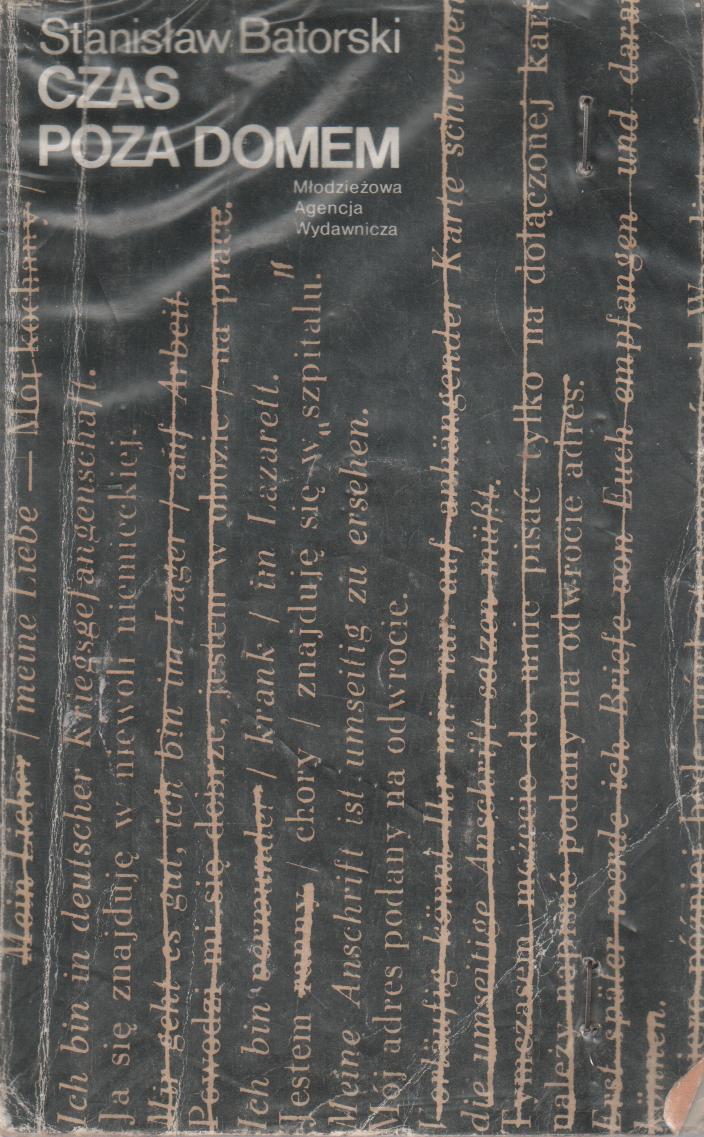 Stanisław Batorski
CZAS
POZA DOMEM
Młodzieżowa
Agencja
Wydawnicza
Mein Lieber / meine Liebe — Mój kochany /
Ich bin in deutscher Kriegsgefangenschaft.
Ja się znajduję w niewoli niemieckiej.
Mir geht es gut, ich bin im Lager / auf Arbeit.
Powodzi mi się dobrze, jestem w obozie / na pracę.
Ich bin verwundet / krank / im Lazarett.
Jestem ranny / chory / znajduję się w „szpitalu."
Meine Anschrift ist umseitig zu ersehen.
Mój adres podany na odwrocie.
könnt Ihr mir nur auf anhängender Karte schreiben
die umseitige Anschrift setzen müßt.
Tymczasem możecie do mnie pisać tylko na dołączonej kart
należy napisać podany na odwrocie adres.
Erst später werde ich Briefe von Euch empfangen und darau
können.